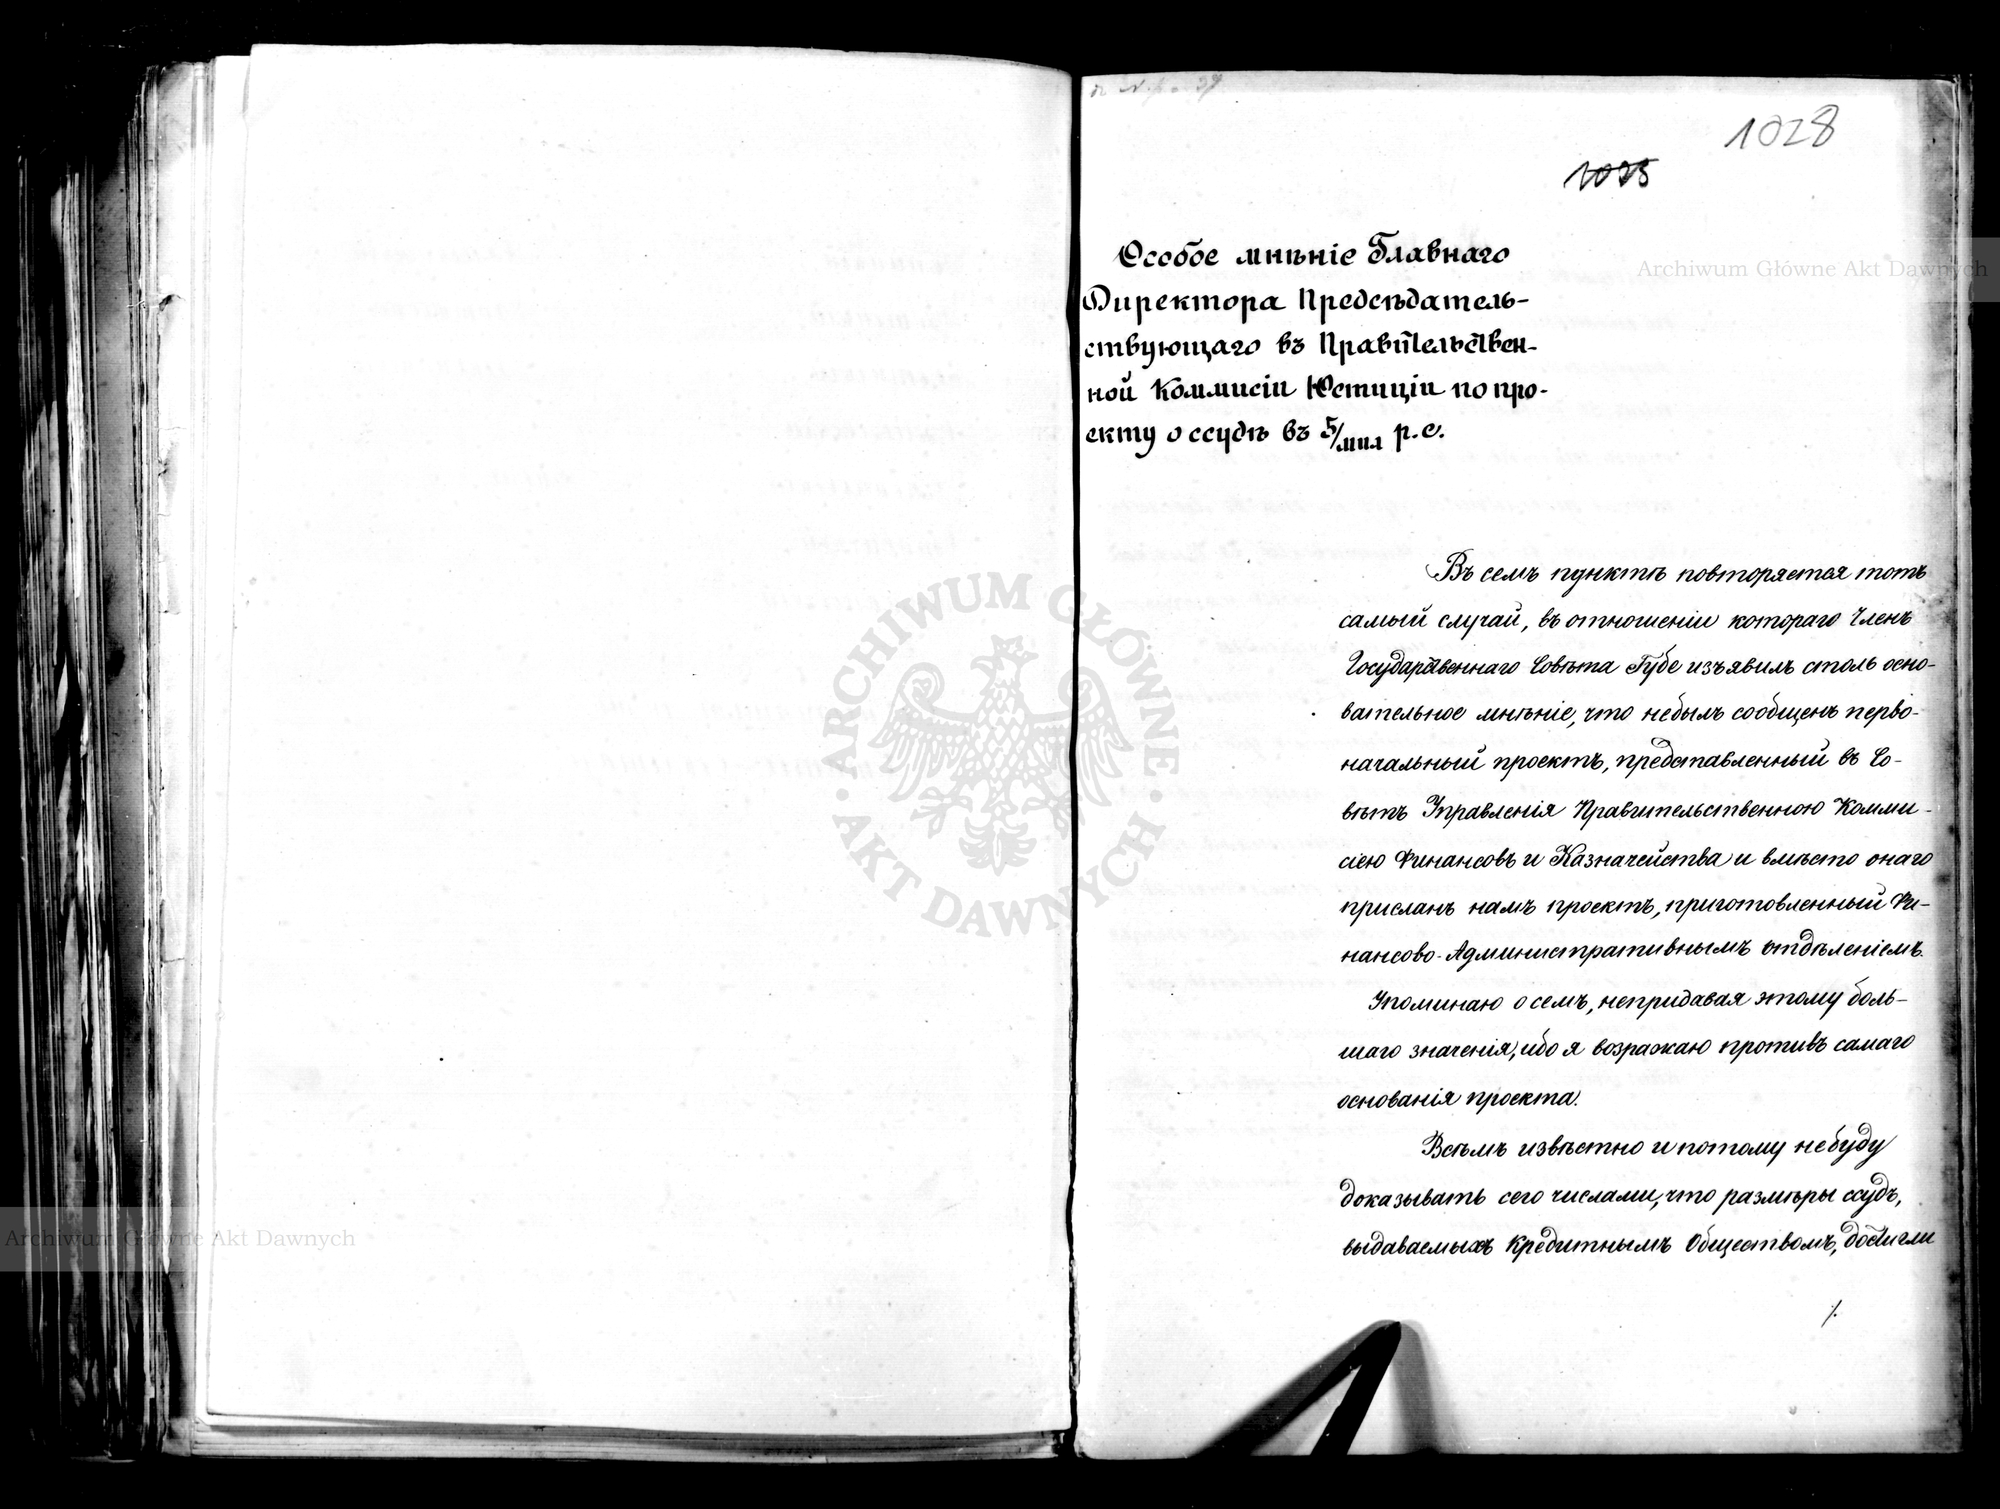 1028
1025
Особое мнѣніе Главнаго
Директора Предсѣдатель-
ствующаго въ Правительствен-
ной Коммисіи Юстиціи по про-
екту о ссудѣ въ 5/мил р.с.
Въ семъ пунктѣ повторяется тотъ
самый случай, въ отношеніи котораго Членъ
Государственнаго Совѣта Губе изъявилъ столь осно-
вательное мнѣніе, что небылъ сообщенъ перво-
начальный проектъ, представленный въ Со-
вѣтъ Управленія Правительственною Комми-
сіею Финансовъ и Казначейства и вмѣсто онаго
присланъ намъ проектъ, приготовленный Фи-
нансово-Административнымъ отдѣленіемъ.
Упоминаю о семъ, непридавая этому боль-
шаго значенія, ибо я возражаю противъ самаго
основанія проекта.
Всѣмъ извѣстно и потому небуду
доказывать сего числами, что размѣры ссудъ,
выдаваемыхъ Кредитнымъ Обществомъ, достигли
Archiwum Główne Akt Dawnych
Archiwum Główne Akt Dawnych
ARCHIWUM GŁÓWNE
AKT DAWNYCH